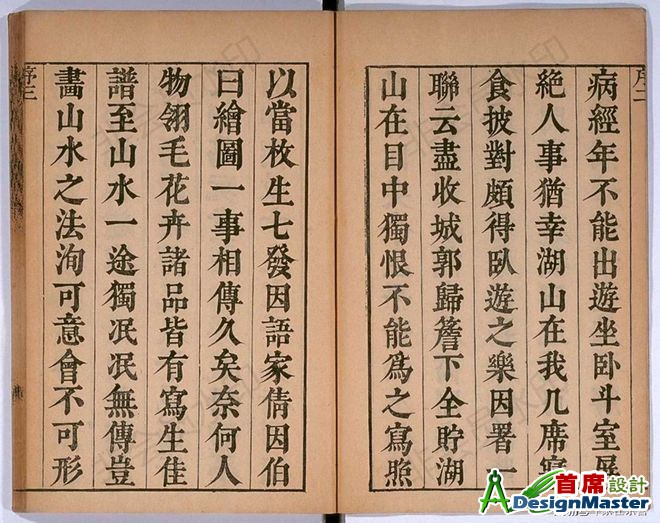 序二
病經年不能出遊坐卧斗室屏
絶人事猶幸湖山在我几席寢
食披對頗得臥遊之樂因署一
聯云盡收城郭歸簷下全貯湖
山在目中獨恨不能爲之寫照
以當枚生七發因語家倩因伯
曰繪圖一事相傳久矣奈何人
物翎毛花卉諸品皆有寫生佳
譜至山水一途獨泯泯無傳豈
畵山水之法洵可意會不可形
序三
首席設計
DesignMaster